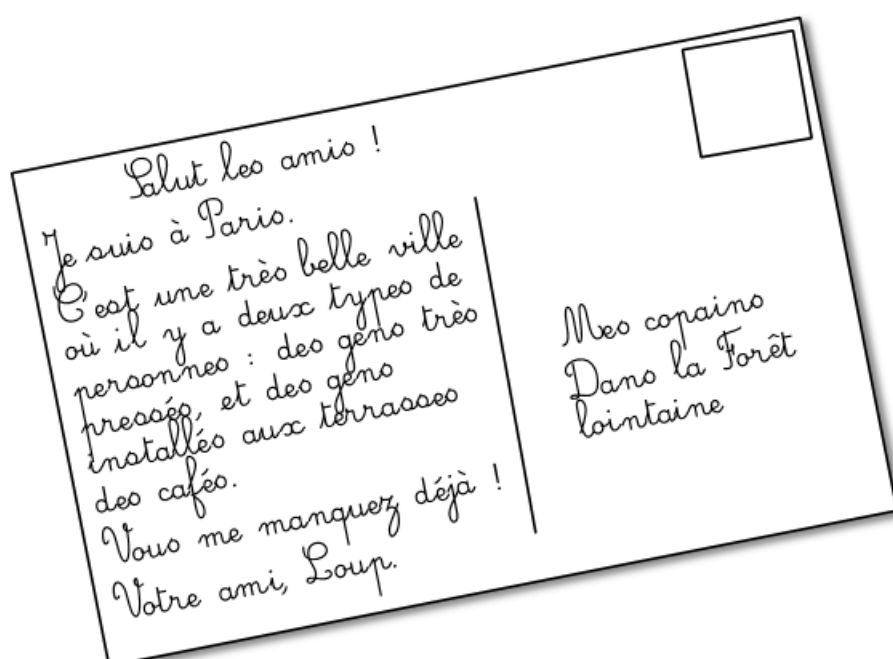 Salut les amis !
Je suis à Paris.
C'est une très belle ville
où il y a deux types de
personnes : des gens très
pressés, et des gens
installés aux terrasses
des cafés.
Vous me manquez déjà !
Votre ami, Loup.
Mes copains
Dans la Forêt
lointaine